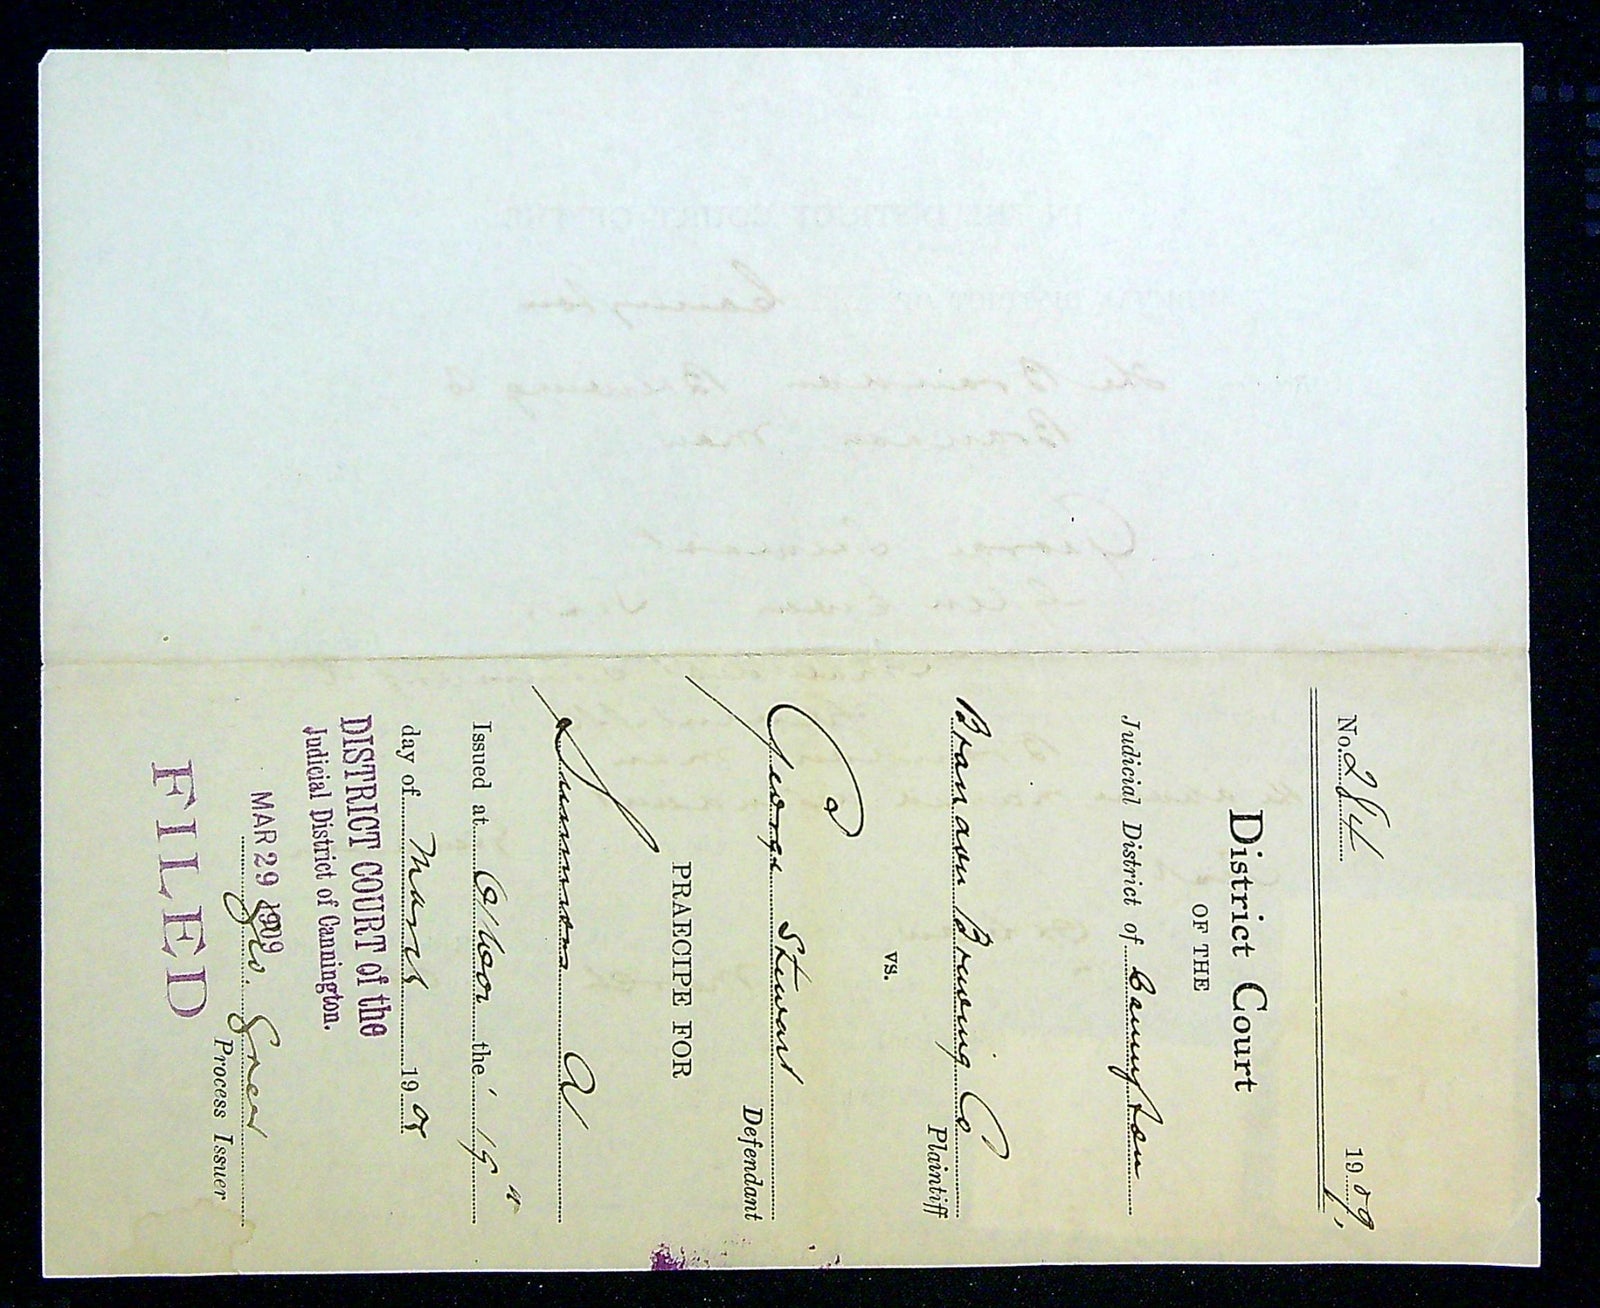 No. 284 1909
District Court
OF THE
Judicial District of Cannington
Brandon Brewing Co
Plaintiff
vs.
George Stewart
Defendant
PRAECIPE FOR
Summons
Issued at the 19th
day of March 1909
DISTRICT COURT of the
Judicial District of Cannington.
MAR 29 1909
Geo.
Process Issuer
FILED